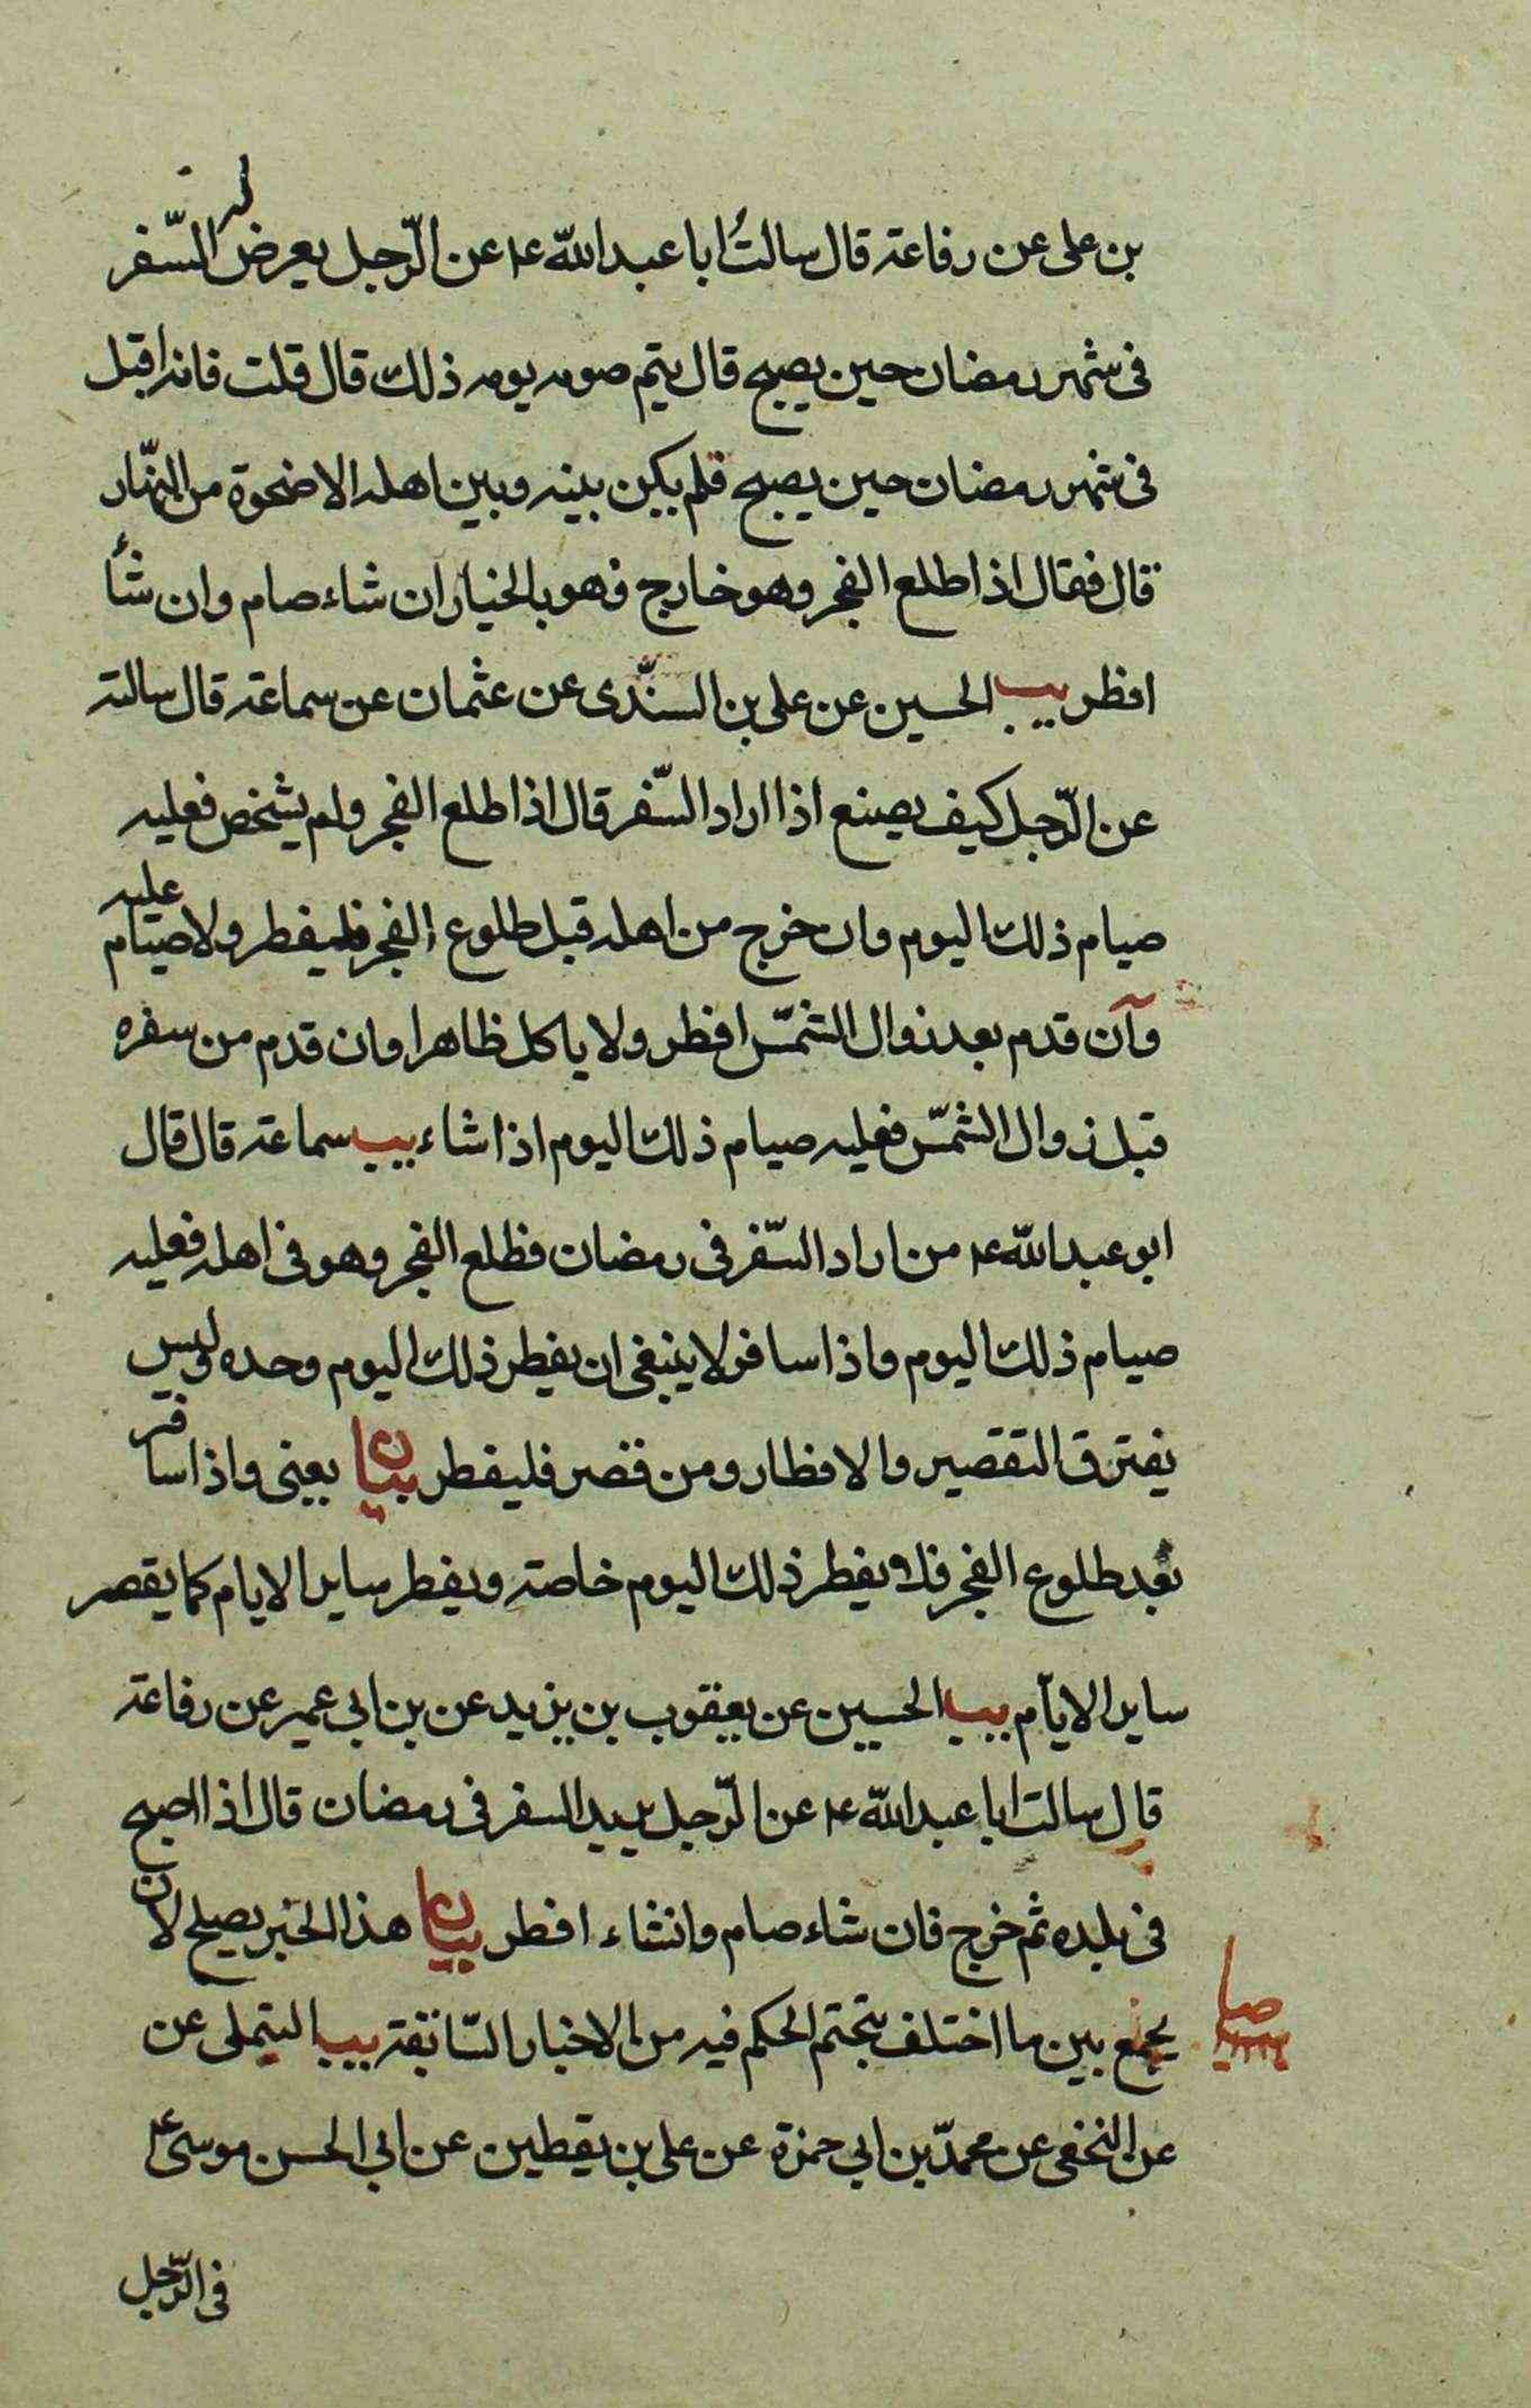 بن على عن رفاعة قال سالتُ ابا عبد الله ع عن الرّجل يعرض له السّفر
فى شهر رمضان حين يصبح قال يتم صومه يومه ذلك قال قلت فانه اقبل
فى شهر رمضان حين يصبح فلم يكن بينه وبين اهله الا ضحوة من النّهار
قال فقال اذا طلع الفجر وهو خارج فهو بالخيار ان شاء صام وان شأ
افطر يب الحسين عن على بن السنّدى عن عثمان عن سماعة قال سالته
عن الرّجل كيف يصنع اذا اراد السّفر قال اذا طلع الفجر ولم يشخص فعليه
صيام ذلك اليوم وان خرج من اهله قبل طلوع الفجر فليفطر ولا صيام عليه
وآن قدم بعد زوال الشمّس افطر ولا ياكل ظاهرا وان قدم من سفره
قبل زوال الشمّس فعليه صيام ذلك اليوم اذا شاء يب سماعة قال قال
ابو عبد الله ع من اراد السّفر فى رمضان فطلع الفجر وهو فى اهله فعليه
صيام ذلك اليوم واذا سافر لا ينبغى ان يفطر ذلك اليوم وحده وليس
يفترق التقصير والافطار ومن قصر فليفطر بيان يعنى واذا سافر
بعد طلوع الفجر فلا يفطر ذلك اليوم خاصة ويفطر ساير الايام كما يقصر
ساير الايآم يب الحسين عن يعقوب بن يزيد عن بن ابى عمير عن رفاعة
قال سالت ابا عبد الله ع عن الرّجل يريد السفر فى رمضان قال اذا اصبح
فى بلده ثم خرج فان شاء صام وانشاء افطر بيان هذا الخبر يصلح لان
يجمع بين ما اختلف بتحتم الحكم فيه من الاخبار السّابقة يب التيملى عن
عن النخعى عن محمدّ بن ابى حمزة عن على بن يقطين عن ابى الحسن موسى ع
فى الرّجل